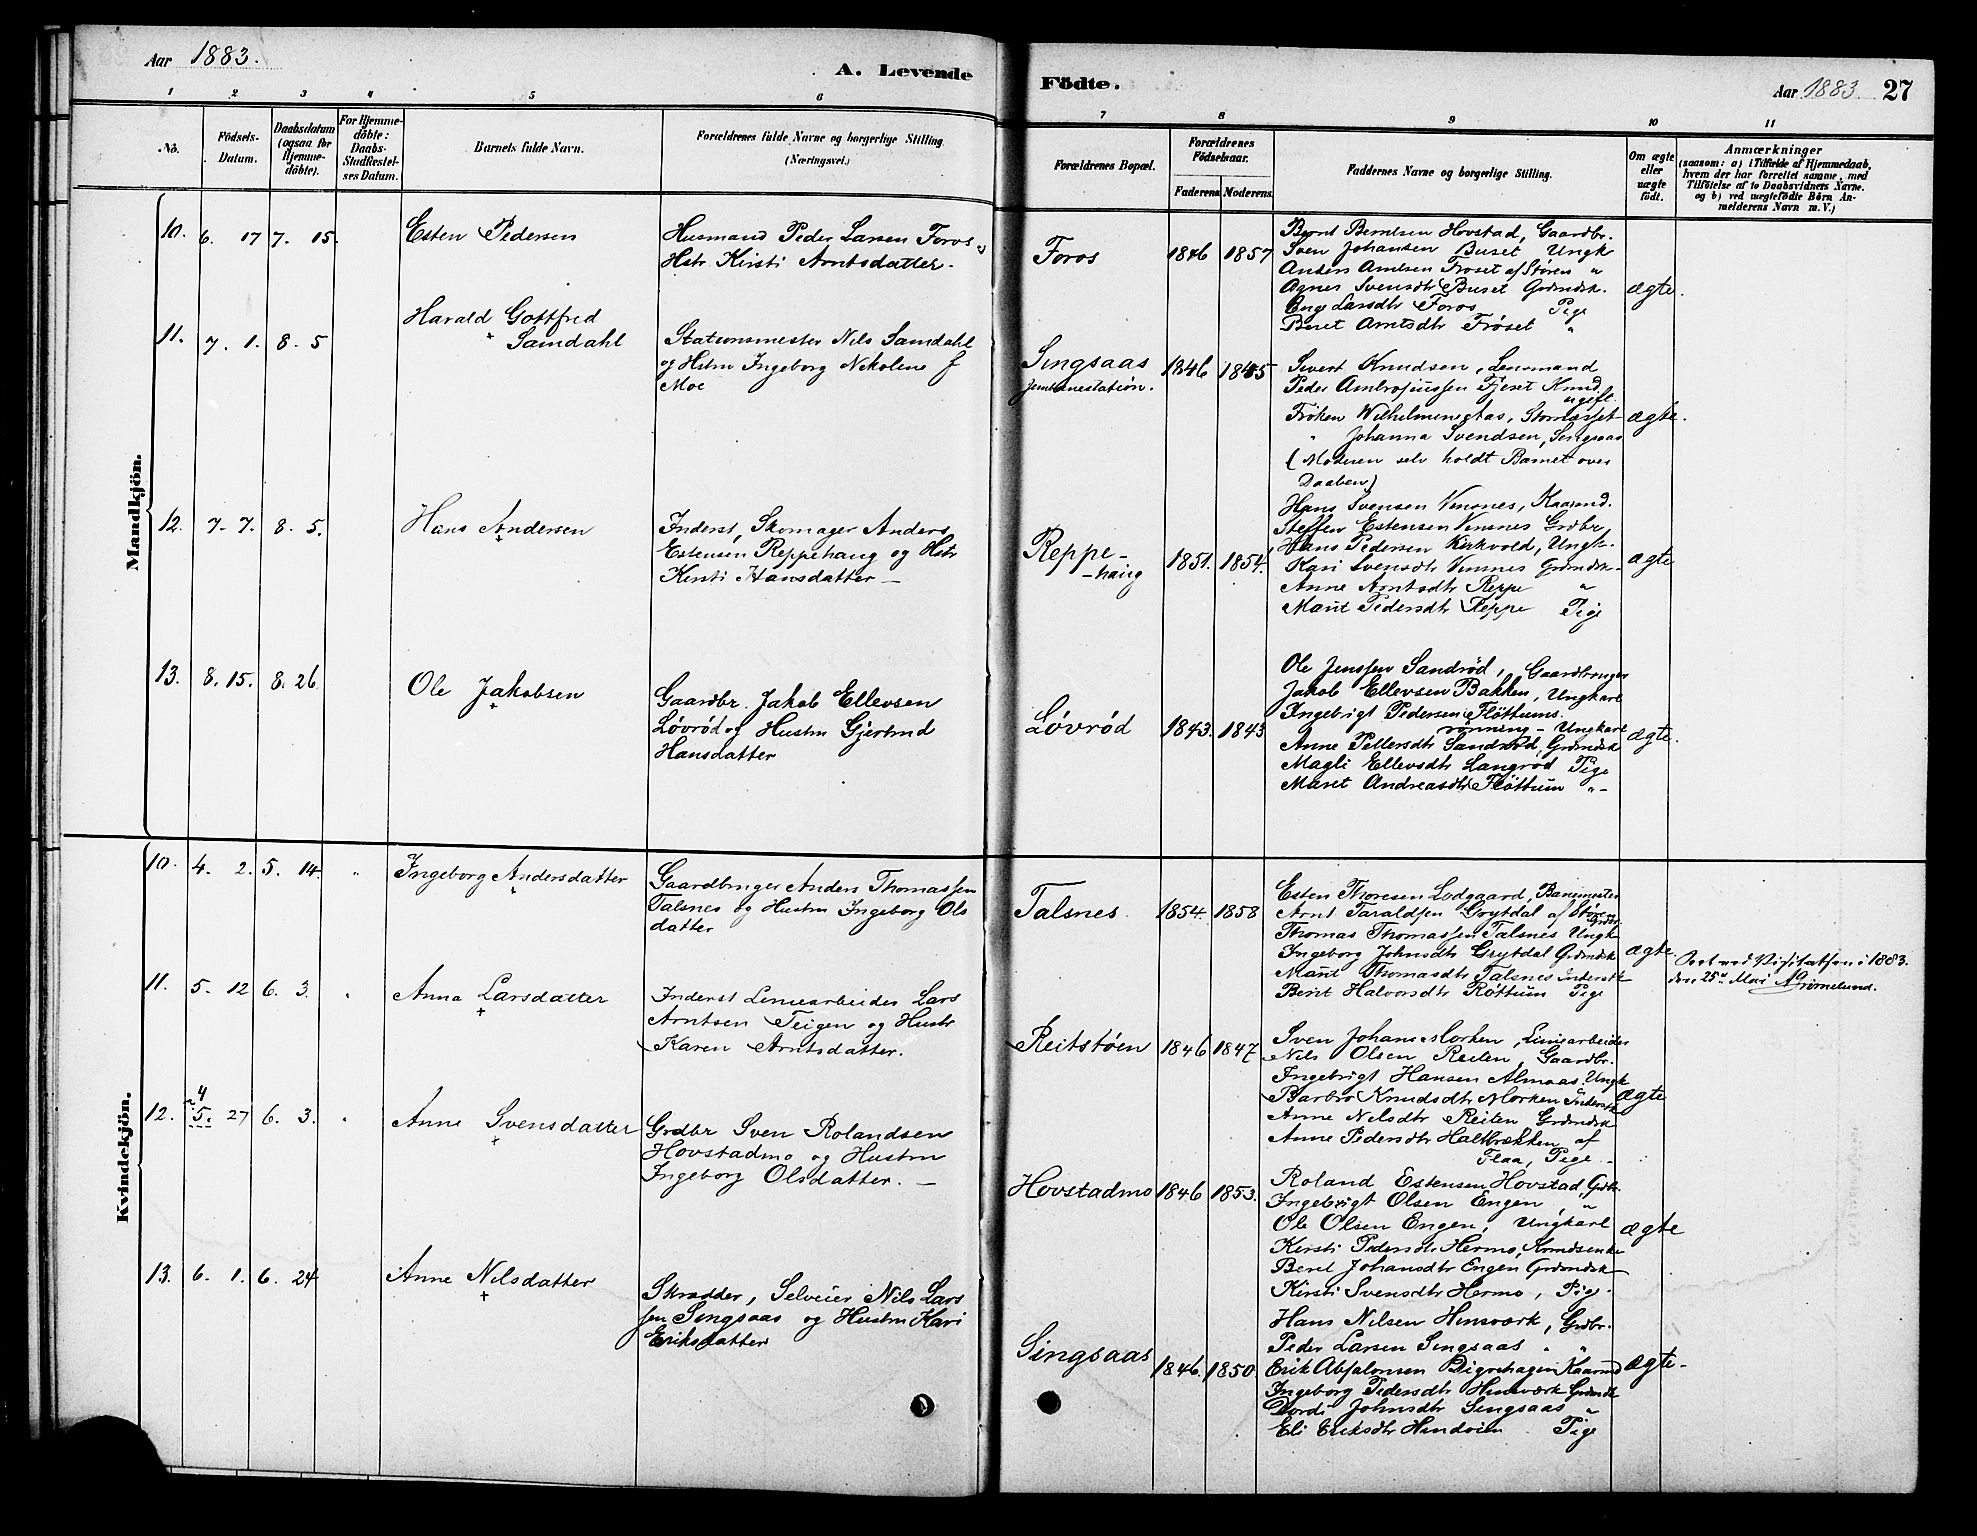 Aar 1883.
A. Levende
Fødte.
Aar 1883 27
1 2 3 4 5 6 7 8 9 10 11
No.
Fødsels-
Datum.
Daabsdatum
(ogsaa for
Hjemme-
døbte).
For Hjemme-
døbte:
Daabs-
Stadfæstel-
ses Datum.
Barnets fulde Navn.
Forældrenes fulde Navne og borgerlige Stilling
(Næringsvei.)
Forældrenes Bopæl.
Forældrenes
Fødselsaar.
Faderens Moderens.
Faddernes Navne og borgerlige Stilling.
Om ægte
eller
uægte
født.
Anmærkninger
(saasom: a) i Tilfælde af Hjemmedaab,
hvem der har forrettet samme, med
Tilføielse af to Daabsvidners Navne.
og b) ved uægtefødte Børn An-
melderens Navn m. V.)
Mandkjön.
10. 6. 17 7. 15.
Esten Pedersen
Husmand Peder Larsen Foros
Hstr. Kirsti Arntsdatter.
Foros
1846 1857
Bernt Berntsen Hovstad, Gaardbr.
Sven Johansen Buset Ungk
Anders Arntsen Frøset af Støren "
Agnes Svensdtr Buset Grdmdsk.
Eng Larsdtr Foros Pige
Beret Arntsdtr Frøset "
ægte.
11. 7. 1. 8. 5
Harald Gottfred
Samdahl
Stationsmester Nils Samdahl
og Hstru Ingeborg Nikoline f
Moe
Singsaas
Jernbanestation.
1846 1845
Sivert Knudsen, Lensmand
Peder Ambrosiussen Fjeset Kmd
ugift.
Frøken
" Johanna Svendsen, Singsaas
(Moderen selv holdt Barnet over
Daaben)
ægte.
12. 7. 7. 8. 5.
Hans Andersen
Inderst, Skomager Anders
Estensen Reppehaug og Hstr
Kirsti Hansdatter —
Reppe-
-haug
1851. 1854.
Hans Svensen Vensnes, Kaarmd.
Steffen Estensen Vensnes Grdbr,
Hans Pedersen Kirkvold, Ungk.
Kari Svensdtr Vensnes Grdmdsk.
Anne Arntsdtr Reppe "
Marit Pedersdtr Reppe Pige
ægte
13. 8. 15. 8. 26
Ole Jakobsen
Gaardbr. Jakob Ellevsen
Løvrød og Hustru Gjertrud
Hansdatter
Løvrød
1843. 1843
Ole Jenssen Sandrød, Gaardbruger
Jakob Ellevsen Bakken, Ungkarl
Ingebrigt Pedersen Fløttums
rønning - Ungkarl
Anne Pettersdtr Sandrød, Grdmdsk
Magli Ellevsdtr Langrød Pige
Marit Andreasdtr Fløttum "-
ægte.
Kvindekjön.
10. 4. 2. 5. 14. "
Ingeborg Andersdatter
Gaardbruger Anders Thomassen
Talsnes og Hustru Ingeborg Ols
datter
Talsnes.
1854. 1858
Esten Thoresen Lodgaard, Banemester
Arnt Taraldsen Grytdal af Støren
Grdbr.
Thomas Thomassen Talsnes Ungk
Ingeborg Johnsdtr Grytdal Grdmdsk
Marit Thomasdtr Talsnes Inderstk
Beret Halvorsdtr Røttum Pige
ægte
Seet ved Visitatsen i 1883.
den 25de Mai Grimelund.
11. 5. 12 6. 3. "
Anna Larsdatter
Inderst Liniearbeider Lars
Arntsen Teigen og Hustr
Karen Arntsdatter.
Reitstøen
1846 1847
Sven Johans Morken, Liniearbeider
Nils Olsen Reiten, Gaardbr.
Ingebrigt Hansen Almaas, Ungk
Barbro Knudsdtr Morken Inderstk
Anne Nilsdtr Reiten Grdmdsk
Anne Pedersdtr Haltbrækken af
Flaa, Pige
ægte
12. 4
5. 27 6. 3. "
Anne Svensdatter
Grdbr Sven Rolandsen
Hovstadmo og Hustru
Ingeborg Olsdatter. —
Hovstadmo
1846 1853.
Roland Estensen Hovstad, Grdb.
Ingebrigt Olsen Engen, "
Ole Olsen Engen, Ungkarl
Kirsti Pedersdtr Hermo,
Beret Johansdtr Engen Grdmdsk
Kirsti Svensdtr Hermo, Pige.
ægte
13. 6. 1. 6. 24
Anne Nilsdatter
Skrædder, Selveier Nils Lars
sen Singsaas og Hustru Kari
Eriksdatter
Singsaas
1846. 1850.
Hans Nilsen Hinsværk, Grdbr.
Peder Larsen Singsaas "
Erik Absalonsen Bigsethagen Kaarmd
Ingeborg Pedersdtr Hinsværk Grdmdk
Dordi Johnsdtr Singsaas "
Eli Eriksdtr Hindøien Pige
ægte-